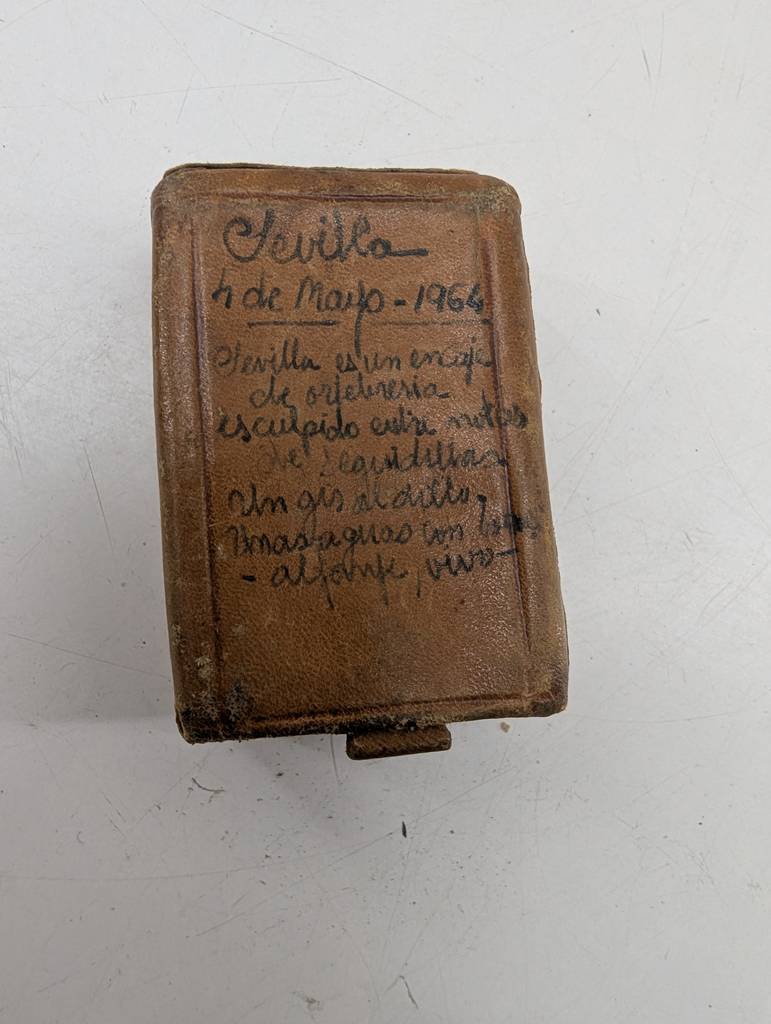 Sevilla
4 de Mayo - 1964
Sevilla es un encaje
de orfebreria
esculpido entre notas
de seguidillas
Un
aguas con
- alfanje, vivo -